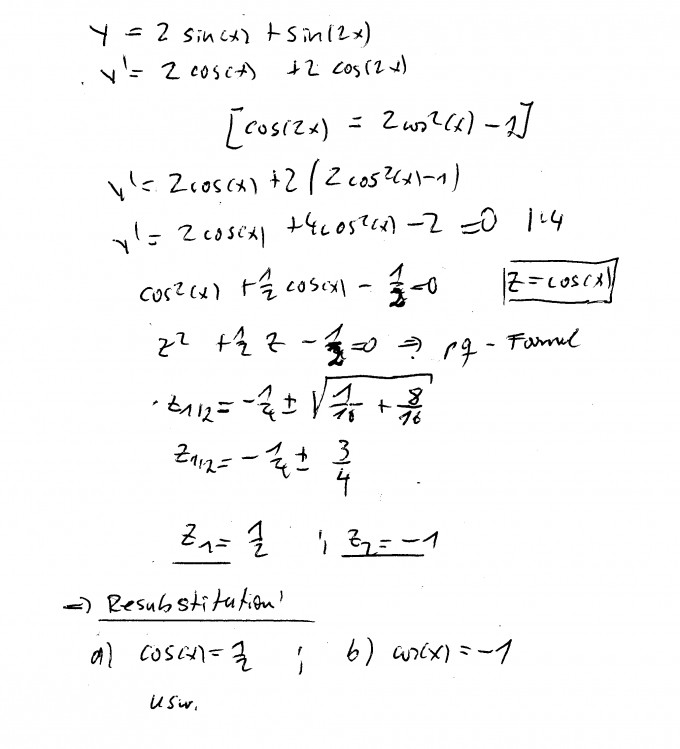 y = 2 sin(x) + sin(2x)
y' = 2 cos(x) + 2 cos(2x)
[cos(2x) = 2cos²(x) - 1]
y' = 2cos(x) + 2(2cos²(x)-1)
y' = 2cos(x) + 4cos²(x) - 2 = 0 |:4
cos²(x) + 1/2 cos(x) - 1/2 = 0 |z = cos(x)|
z² + 1/2 z - 1/2 = 0 ⇒ pq - Formel
z1/2 = -1/4 ± √(1/16 + 8/16)
z1/2 = -1/4 ± 3/4
z1 = 1/2 ; z2 = -1
⇒ Resubstitution:
a) cos(x) = 1/2 ; b) cos(x) = -1
usw.